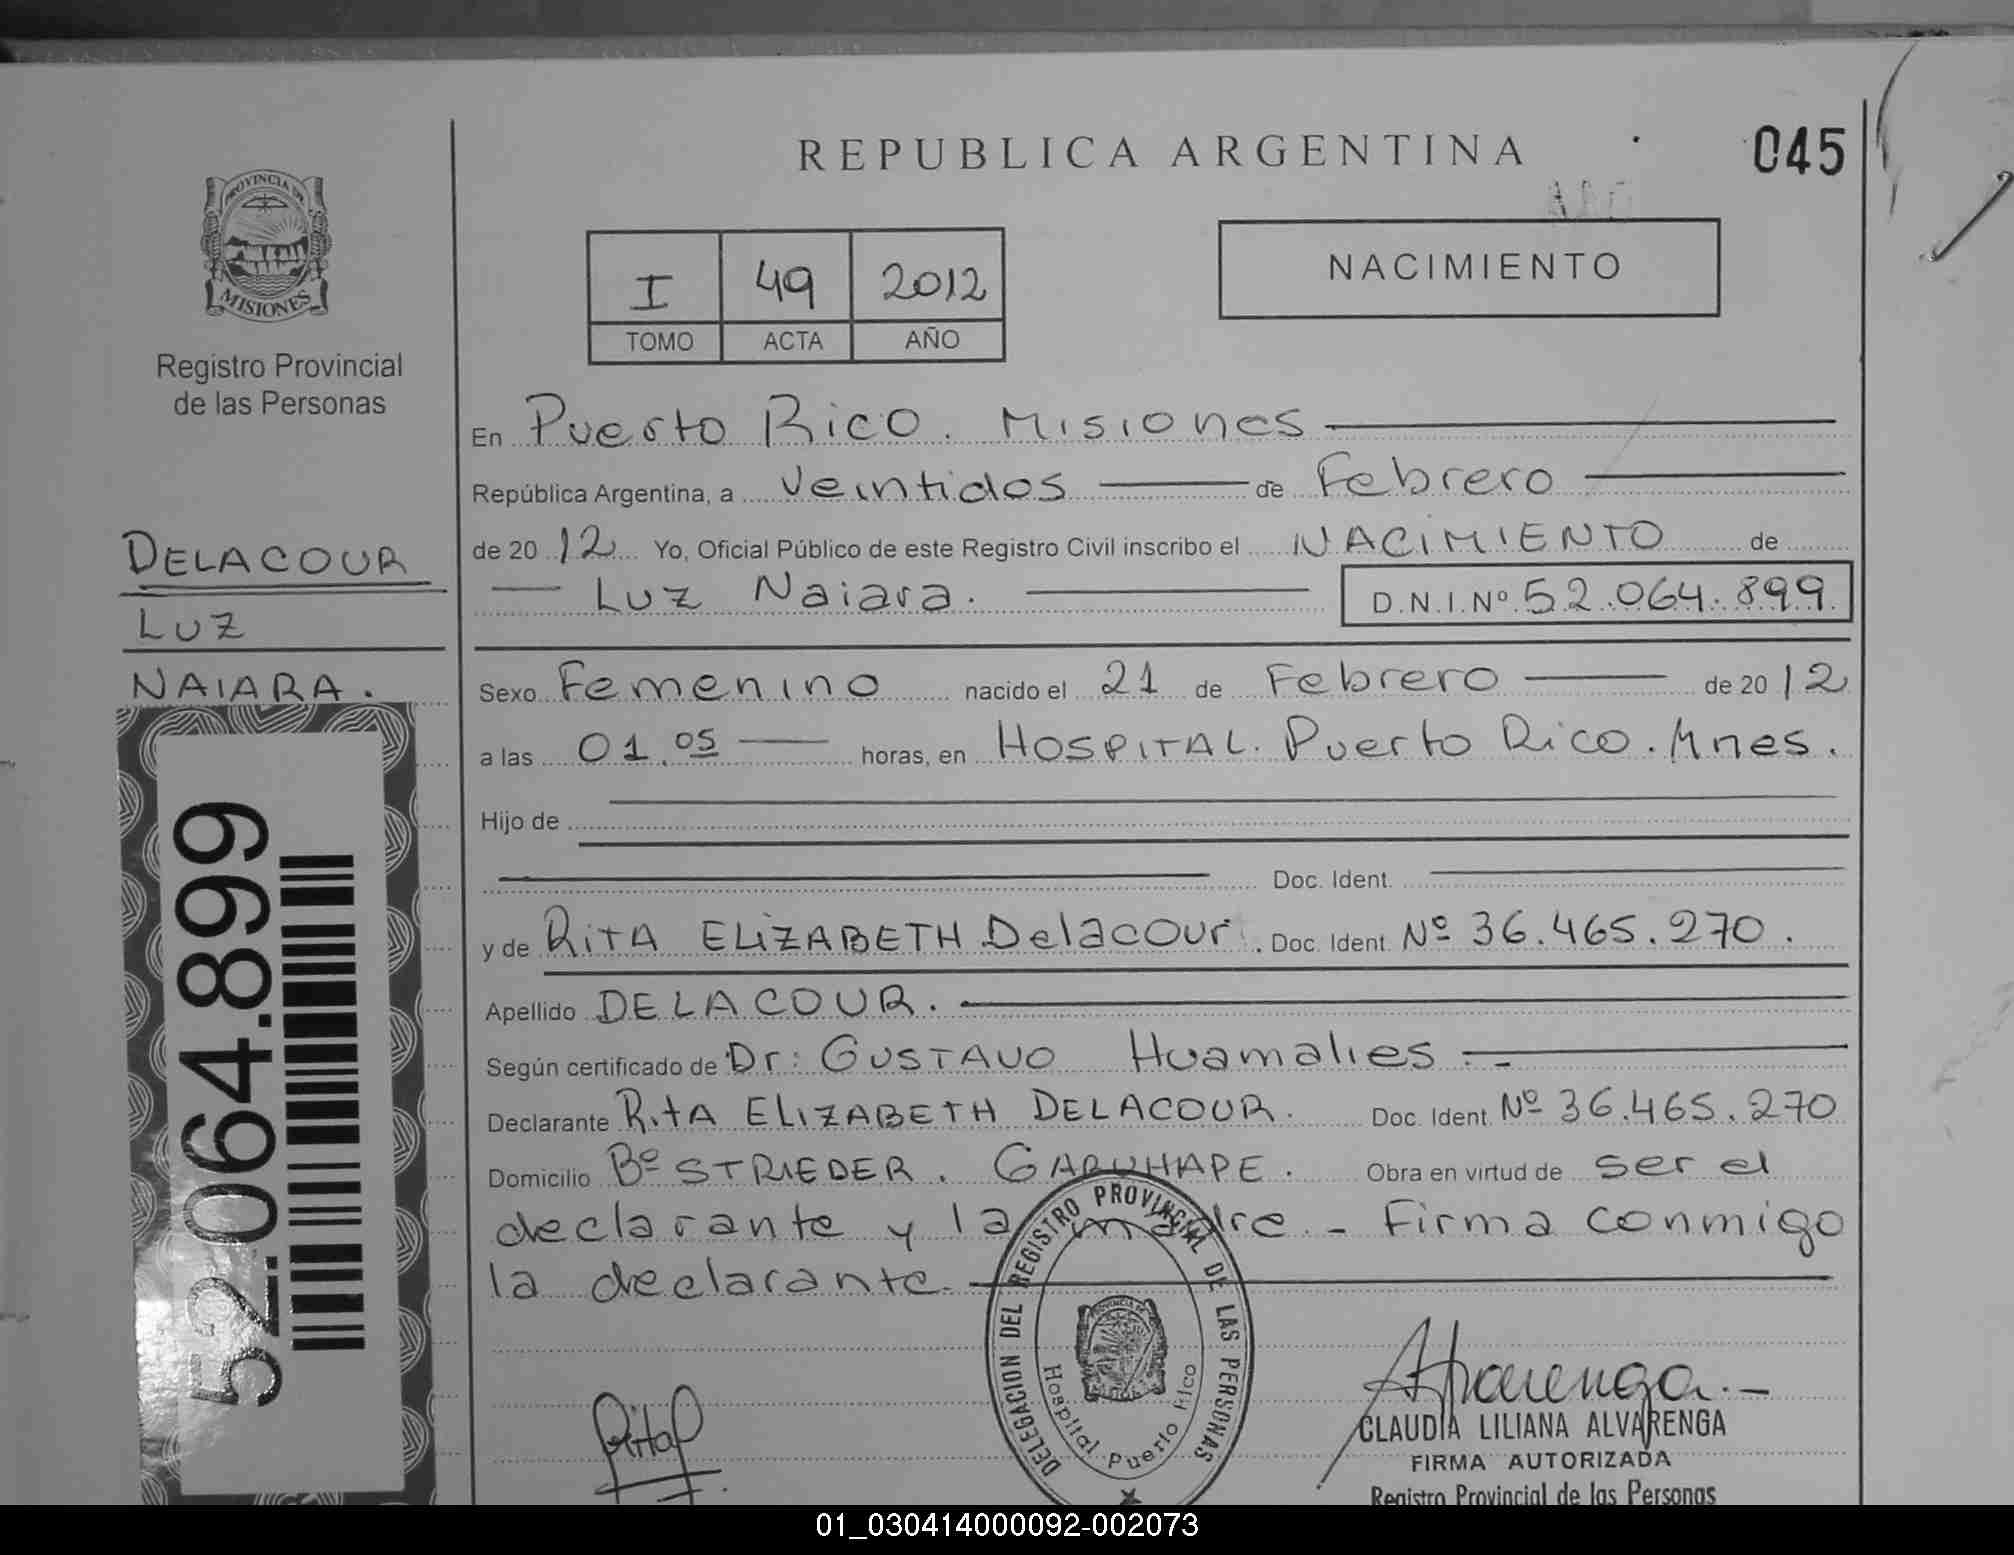 REPUBLICA ARGENTINA
045
PROVINCIA DE
MISIONES
Registro Provincial
de las Personas
I 49 2012
TOMO ACTA AÑO
NACIMIENTO
En Puerto Rico. Misiones
República Argentina, a veintidos de Febrero
de 20 12 Yo, Oficial Público de este Registro Civil inscribo el NACIMIENTO de
Luz Naiara. D.N.I.Nº 52.064.899
DELACOUR
LUZ
NAIARA.
Sexo Femenino nacido el 21 de Febrero de 20 12
a las 01.05 horas, en HOSPITAL. Puerto Rico. Mnes.
Hijo de
Doc. Ident.
y de RITA ELIZABETH Delacour. Doc. Ident. Nº 36.465.270.
Apellido DELACOUR.
Según certificado de Dr: GUSTAVO Huamalies.-
Declarante RitA ELIZABETH DELACOUR. Doc. Ident. Nº 36.465.270
Domicilio Bº STRIEDER. GARUHAPE. Obra en virtud de ser el
declarante y la madre.- Firma conmigo
la declarante.
52.064.899
DELEGACION DEL REGISTRO PROVINCIAL DE LAS PERSONAS
Hospital Puerto Rico
Alvarenga.-
CLAUDIA LILIANA ALVARENGA
FIRMA AUTORIZADA
Registro Provincial de las Personas
01_030414000092-002073